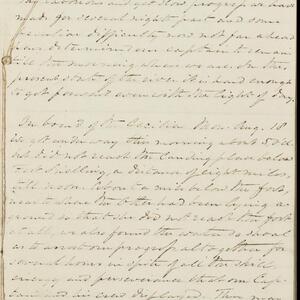 day laborious and yet slow progress we have
made for several nights past and some
peculiar difficulty now not far ahead
have determined our captain to remain
till the morning where we are. In the
present state of the river it is hard enough
to get forward even with the light of day.
On board of St. Cecilia Mon. Aug. 18
We got under way this morning about 5 o'cl.
but did not reach the landing place below
Fort Snelling, a distance of eight miles,
till noon. About a mile below the fort
had been lying a
ground so that she did not reach the fort
at all, we also found the water so shoal
as to arrest our progress altogether for
several hours in spite of all the skill
energy and perseverance that our cap
tain and his crew displayed. The man